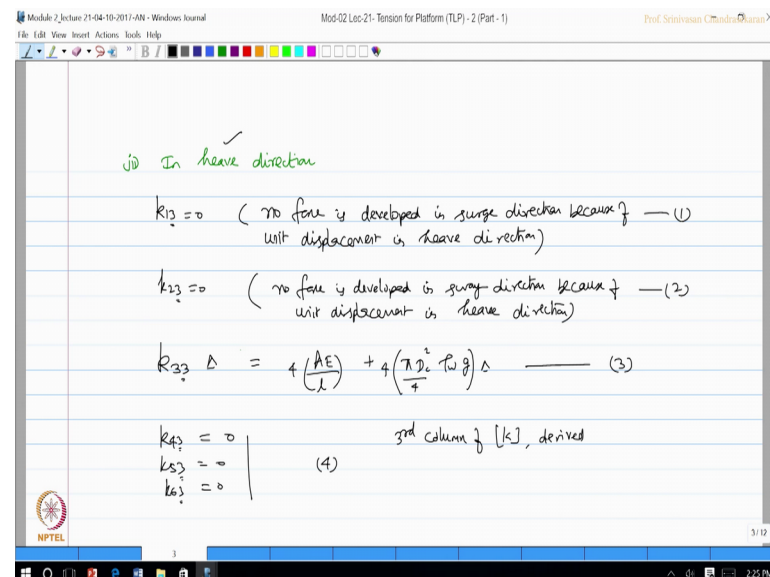 Module 2_lecture 21-04-10-2017-AN - Windows Journal
Mod-02 Lec-21- Tension for Platform (TLP) - 2 (Part - 1)
Prof. Srinivasan Chandrasekaran
File Edit View Insert Actions Tools Help
ii) In heave direction
k13 = 0 ( no force is developed in surge direction because of — (1)
unit displacement in heave direction)
k23 = 0 ( no force is developed in sway direction because of — (2)
unit displacement in heave direction)
k33 Δ = 4 (AE/l) + 4 (πDc²/4 ρw g) Δ — (3)
k43 = 0 3rd column of [k], derived
k53 = 0 (4)
k63 = 0
NPTEL
3/12
3
2:25 PM